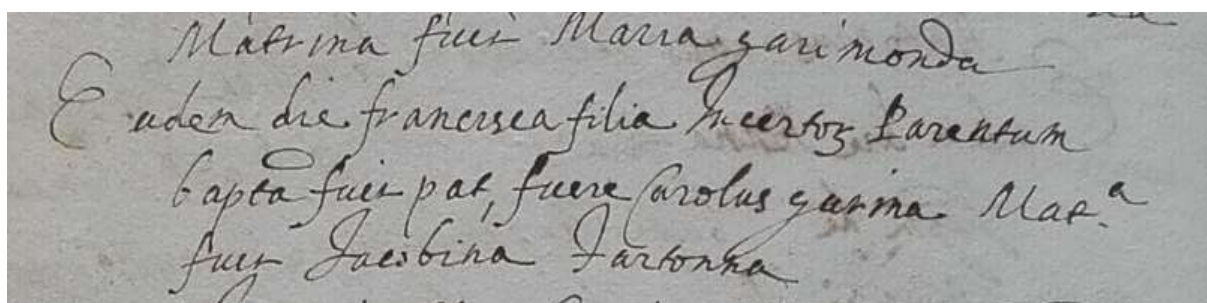 Matrina fuit Maria garimonda
Eadem die francisca filia Incertoꝝ Parentum
bapta fuit pat, fuere Carolus garina Mat.ᵃ
fuit Jacobina Tartonna